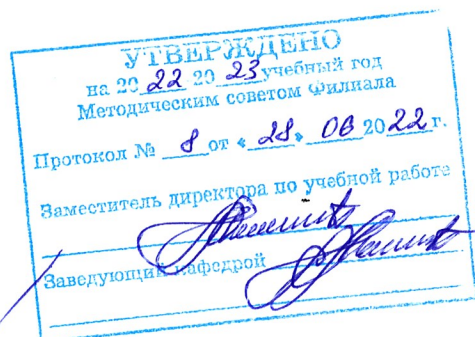 УТВЕРЖДЕНО
на 2022 2023 учебный год
Методическим советом Филиала
Протокол № 8 от «28» 06 2022 г.
Заместитель директора по учебной работе
Заведующий кафедрой